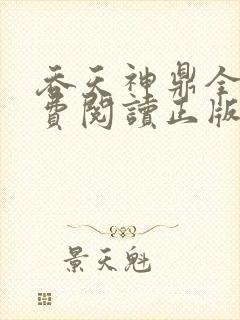 吞天神鼎全
費閱讀正版
景天魁